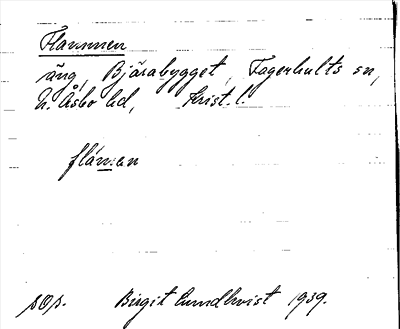 Flammen
äng, Bjärabygget, Fagerhults sn,
N. Åsbo hd, Krist. l.
flám:en
sOp. Birgit Lundkvist 1939.